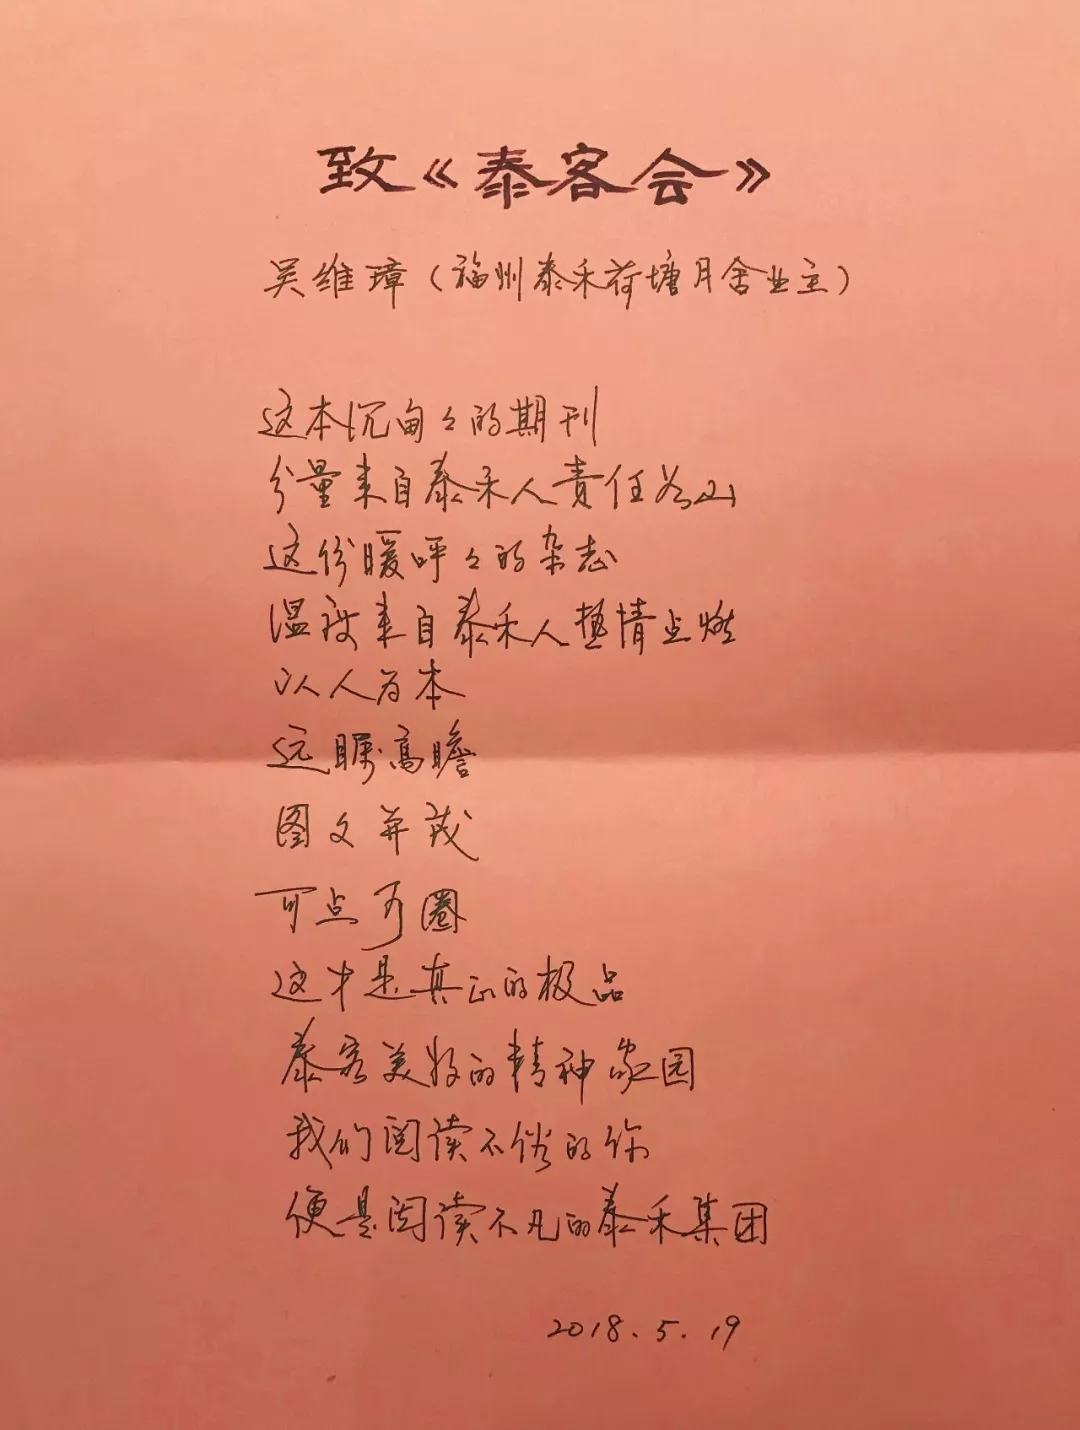 致《泰客会》
吴维璋（福州泰禾荷塘月舍业主）
这本沉甸々的期刊
分量来自泰禾人责任如山
这份暖呼々的杂志
温度来自泰禾人热情点燃
以人为本
远瞩高瞻
图文并茂
可点可圈
这才是真正的极品
泰客美好的精神家园
我们阅读不俗的你
便是阅读不凡的泰禾集团
2018.5.19